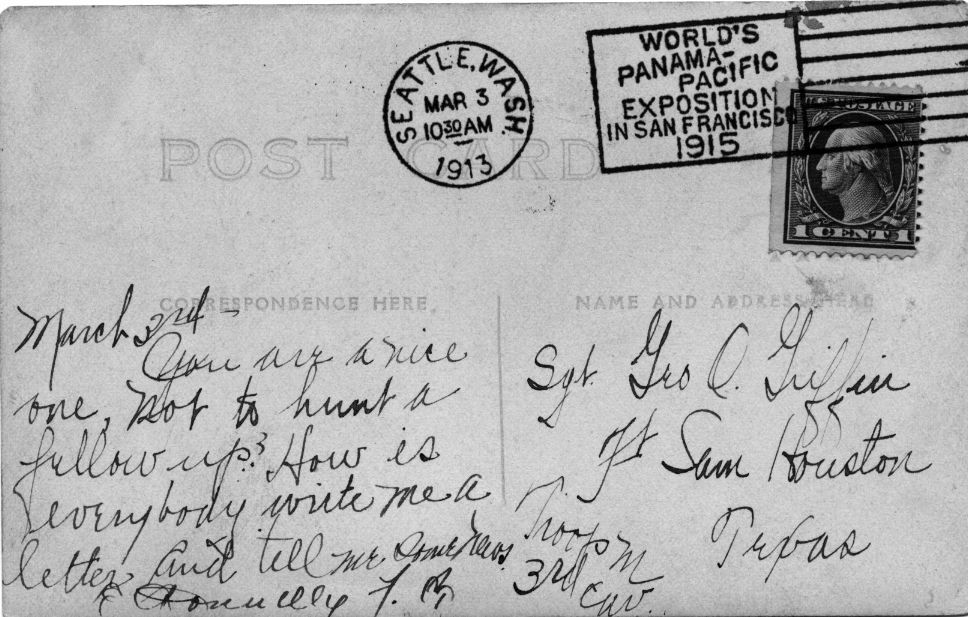 POST CARD
SEATTLE, WASH.
MAR 3
10 30 AM
1913
WORLD'S
PANAMA-
PACIFIC
EXPOSITION
IN SAN FRANCISCO
1915
U.S. POSTAGE
1 CENT 1
CORRESPONDENCE HERE.
March 3rd -
You are a nice
one, Not to hunt a
fellow up? How is
everybody write me a
letter and tell me some news.
NAME AND ADDRESS HERE
Sgt. Geo O. Griffin
Ft Sam Houston
Texas
Troop M
3rd Cav.